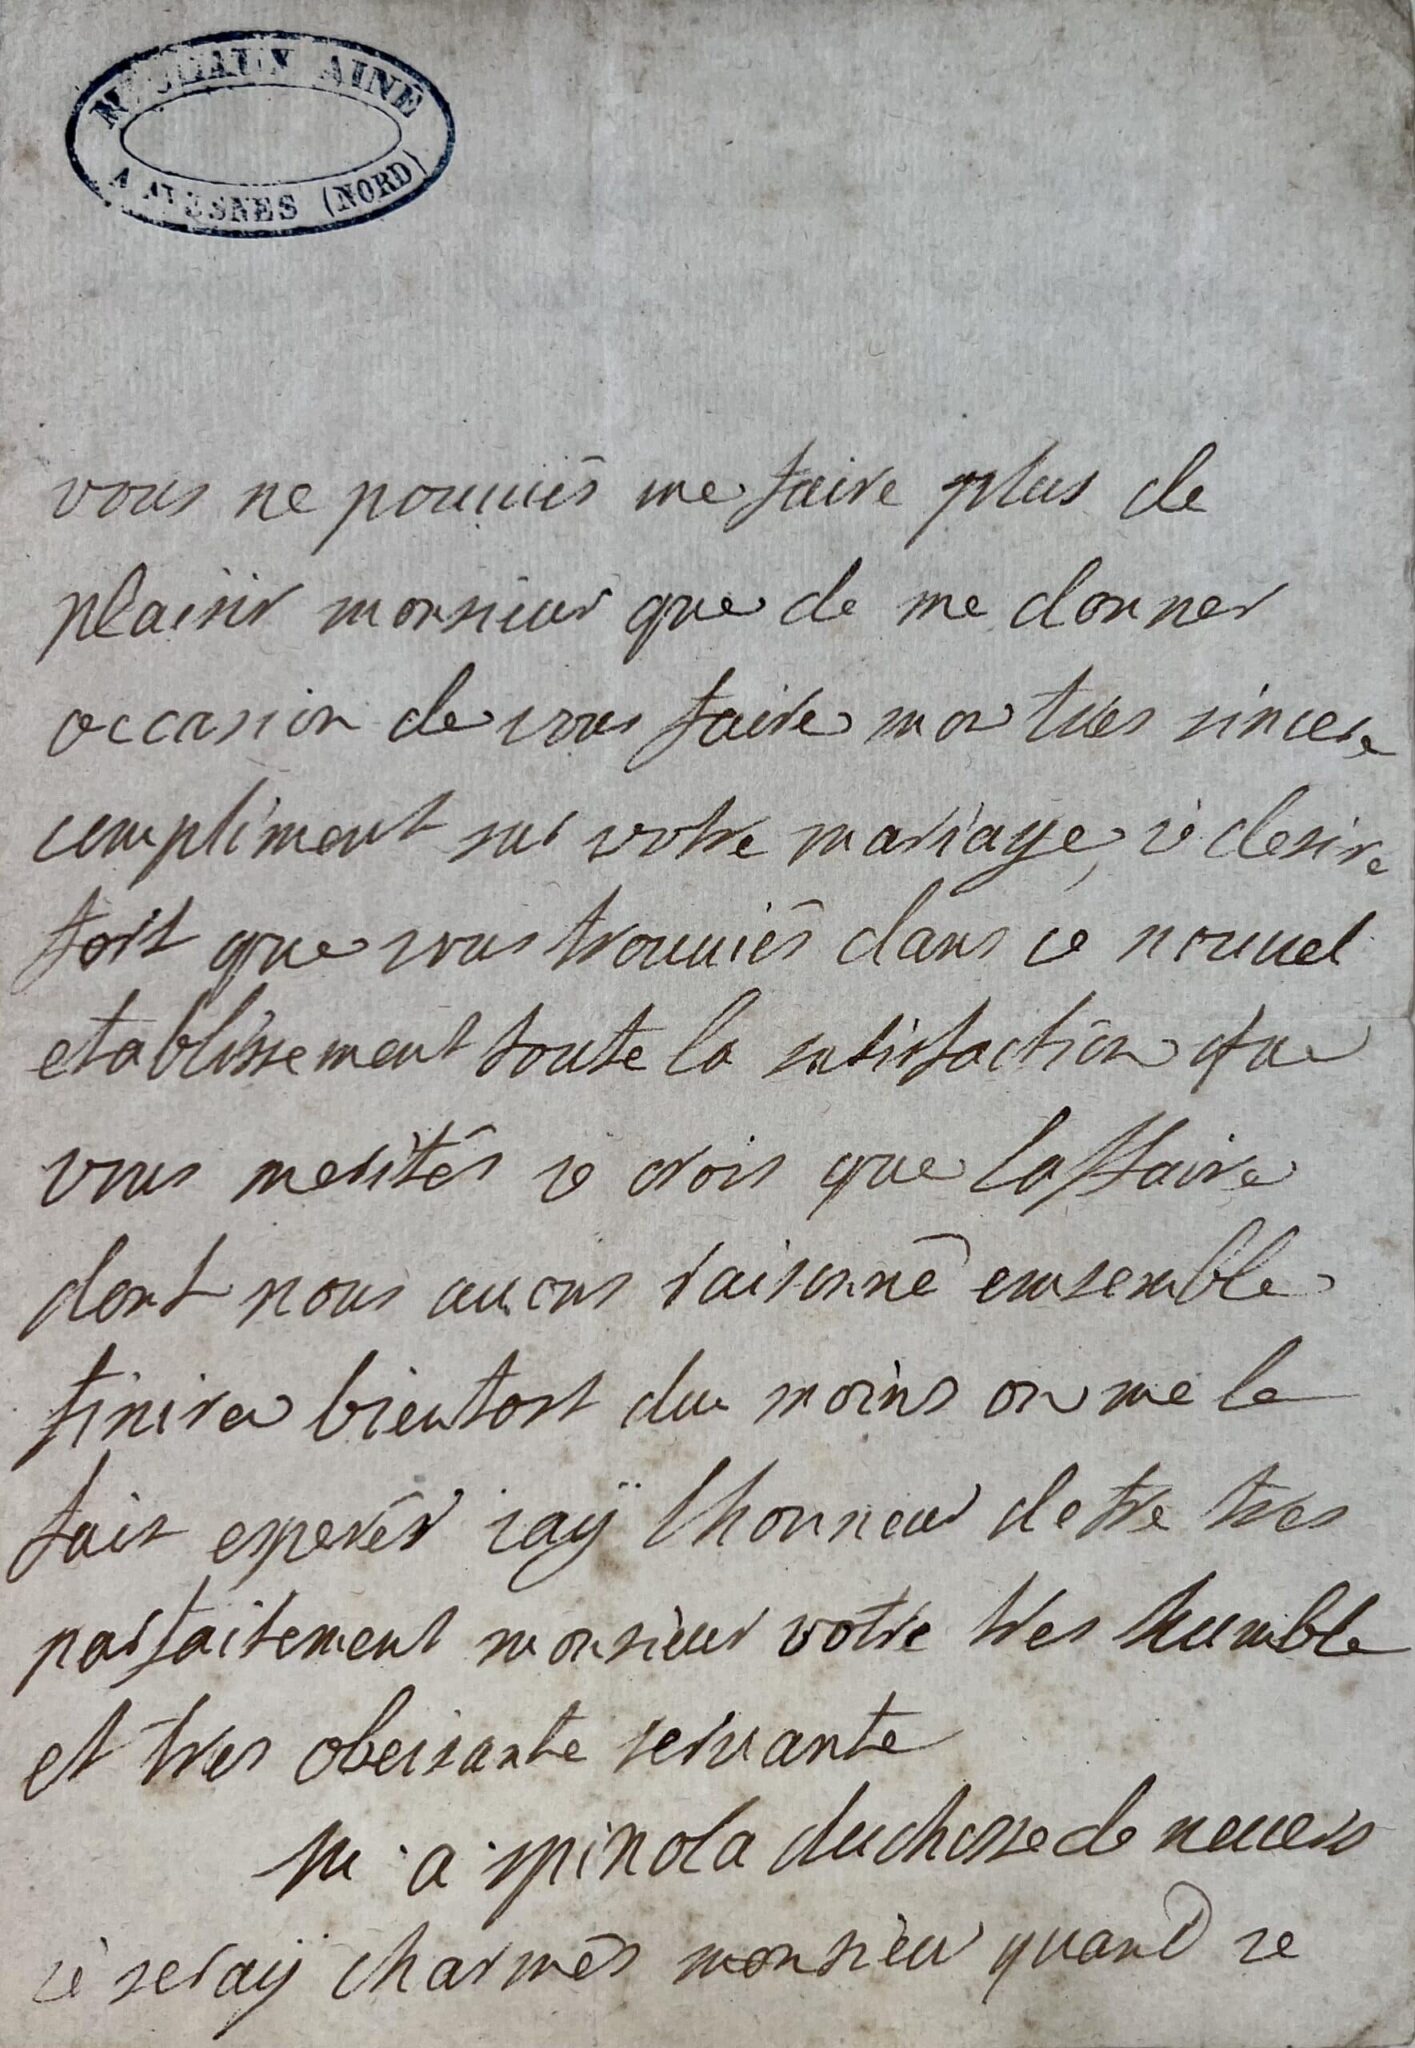 AINÉ
A AVESNES (NORD)
vous ne pouuiés me faire plus de
plaisir monsieur que de me donner
occasion de vous faire mon tres sincere
compliment sur votre mariage, ie desire
fort que vous trouuiés dans ce nouuel
etablissement toute la satisfaction que
vous merités ie crois que laffaire
dont nous auons raisonné emsemble
finira bientost du moins on me le
fait esperér iaÿ lhonneur detre tres
parfaitement monsieur votre tres humble
et tres obeisante seruante
m · a · spinola duchesse de neuers
ie seraÿ charmés monsieur quand ie